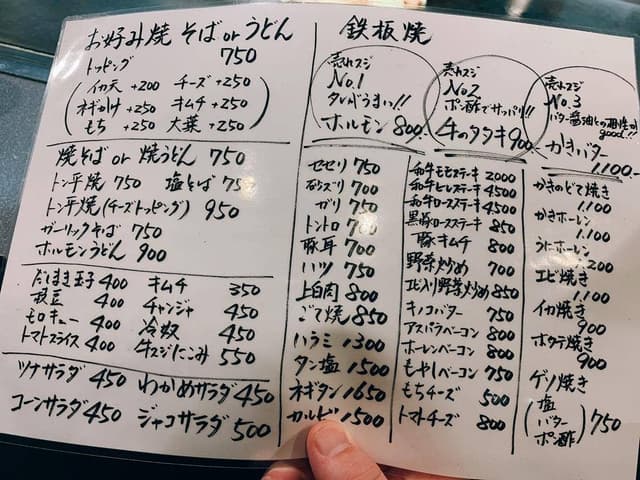 お好み焼 そば or うどん
750
トッピング
イカ天 +200 チーズ +250
ネギかけ +250 キムチ +250
もち +250 大葉 +250
焼そば or 焼うどん 750
トン平焼 750 塩そば 750
トン平焼(チーズトッピング) 950
ガーリックそば 750
ホルモンうどん 900
だしまき玉子 400 キムチ 350
枝豆 400 チャンジャ 450
モロキュー 400 冷奴 450
トマトスライス 400 牛スジにこみ 550
ツナサラダ 450 わかめサラダ 450
コーンサラダ 450 ジャコサラダ 500
鉄板焼
売れスジ
No.1
タレがうまい!!
ホルモン 800.-
売れスジ
No2
ポン酢でサッパリ!!
牛のタタキ 900.-
売れスジ
No.3
バター醤油との相性が
good!!
かきバター
1,100.-
セセリ 750
砂ズリ 700
ガリ 750
トントロ 700
豚耳 700
ハツ 750
上白肉 800
ごて焼 850
ハラミ 1300
タン塩 1500
ネギタン 1650
カルビ 1500
和牛モモステーキ 2000
和牛ヒレステーキ 4500
和牛ロースステーキ 4500
黒豚ロースステーキ 850
豚キムチ 800
野菜炒め 700
エビ入り野菜炒め 850
キノコバター 750
アスパラベーコン 800
ホーレンベーコン 800
もやしベーコン 750
もちチーズ 500
トマトチーズ 800
かきのどて焼き
1,100
かきホーレン
1,100
うにホーレン
200
エビ焼き
1,100
イカ焼き
900
ホタテ焼き
900
ゲソ焼き
(塩
バター
ポン酢) 750